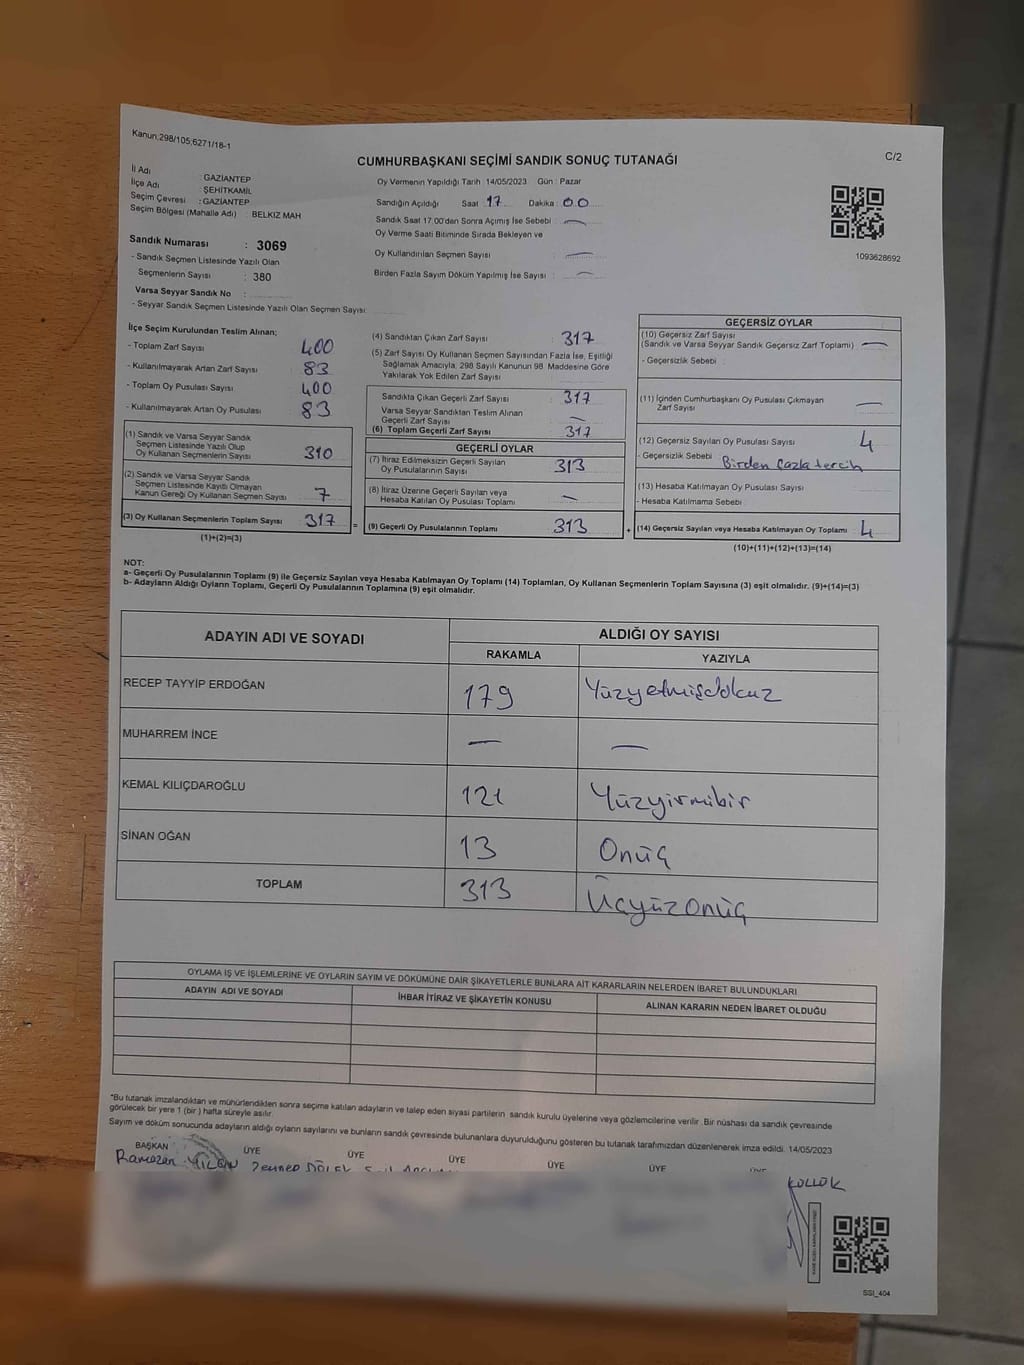 Kanun:298/105,6271/18-1
CUMHURBAŞKANI SEÇİMİ SANDIK SONUÇ TUTANAĞI
C/2
İl Adı : GAZİANTEP
İlçe Adı : ŞEHİTKAMİL
Seçim Çevresi : GAZİANTEP
Seçim Bölgesi (Mahalle Adı) : BELKIZ MAH
Oy Vermenin Yapıldığı Tarih 14/05/2023 Gün : Pazar
Sandığın Açıldığı Saat 17 Dakika : 00
Sandık Saat 17.00'dan Sonra Açımış İse Sebebi : —
Oy Verme Saati Bitiminde Sırada Bekleyen ve
Oy Kullandırılan Seçmen Sayısı —
Birden Fazla Sayım Döküm Yapılmış İse Sayısı : —
1093628692
Sandık Numarası : 3069
- Sandık Seçmen Listesinde Yazılı Olan
Seçmenlerin Sayısı : 380
Varsa Seyyar Sandık No :
- Seyyar Sandık Seçmen Listesinde Yazılı Olan Seçmen Sayısı:
İlçe Seçim Kurulundan Teslim Alınan;
- Toplam Zarf Sayısı 400
- Kullanılmayarak Artan Zarf Sayısı : 83
- Toplam Oy Pusulası Sayısı : 400
- Kullanılmayarak Artan Oy Pusulası : 83
(1) Sandık ve Varsa Seyyar Sandık
Seçmen Listesinde Yazılı Olup
Oy Kullanan Seçmenlerin Sayısı : 310
(2) Sandık ve Varsa Seyyar Sandık
Seçmen Listesinde Kayıtlı Olmayan
Kanun Gereği Oy Kullanan Seçmen Sayısı : 7
(3) Oy Kullanan Seçmenlerin Toplam Sayısı : 317
(1)+(2)=(3)
=
(4) Sandıktan Çıkan Zarf Sayısı : 317
(5) Zarf Sayısı Oy Kullanan Seçmen Sayısından Fazla İse, Eşitliği
Sağlamak Amacıyla, 298 Sayılı Kanunun 98. Maddesine Göre
Yakılarak Yok Edilen Zarf Sayısı :
Sandıkta Çıkan Geçerli Zarf Sayısı : 317
Varsa Seyyar Sandıktan Teslim Alınan
Geçerli Zarf Sayısı : —
(6) Toplam Geçerli Zarf Sayısı : 317
GEÇERLİ OYLAR
(7) İtiraz Edilmeksizin Geçerli Sayılan
Oy Pusulalarının Sayısı : 313
(8) İtiraz Üzerine Geçerli Sayılan veya
Hesaba Katılan Oy Pusulası Toplamı : —
(9) Geçerli Oy Pusulalarının Toplamı : 313
+
GEÇERSİZ OYLAR
(10) Geçersiz Zarf Sayısı
(Sandık ve Varsa Seyyar Sandık Geçersiz Zarf Toplamı) : —
- Geçersizlik Sebebi :
(11) İçinden Cumhurbaşkanı Oy Pusulası Çıkmayan
Zarf Sayısı : —
(12) Geçersiz Sayılan Oy Pusulası Sayısı : 4
- Geçersizlik Sebebi : Birden fazla tercih
(13) Hesaba Katılmayan Oy Pusulası Sayısı :
- Hesaba Katılmama Sebebi :
(14) Geçersiz Sayılan veya Hesaba Katılmayan Oy Toplamı : 4
(10)+(11)+(12)+(13)=(14)
NOT:
a- Geçerli Oy Pusulalarının Toplamı (9) ile Geçersiz Sayılan veya Hesaba Katılmayan Oy Toplamı (14) Toplamları, Oy Kullanan Seçmenlerin Toplam Sayısına (3) eşit olmalıdır. (9)+(14)=(3)
b- Adayların Aldığı Oyların Toplamı, Geçerli Oy Pusulalarının Toplamına (9) eşit olmalıdır.
ADAYIN ADI VE SOYADI ALDIĞI OY SAYISI
RAKAMLA YAZIYLA
RECEP TAYYİP ERDOĞAN 179 Yüzyetmişdokuz
MUHARREM İNCE — —
KEMAL KILIÇDAROĞLU 121 Yüzyirmibir
SİNAN OĞAN 13 Onüç
TOPLAM 313 Üçyüzonüç
OYLAMA İŞ VE İŞLEMLERİNE VE OYLARIN SAYIM VE DÖKÜMÜNE DAİR ŞİKAYETLERLE BUNLARA AİT KARARLARIN NELERDEN İBARET BULUNDUKLARI
ADAYIN ADI VE SOYADI İHBAR İTİRAZ VE ŞİKAYETİN KONUSU ALINAN KARARIN NEDEN İBARET OLDUĞU
*Bu tutanak imzalandıktan ve mühürlendikten sonra seçime katılan adayların ve talep eden siyasi partilerin sandık kurulu üyelerine veya gözlemcilerine verilir. Bir nüshası da sandık çevresinde
görülecek bir yere 1 (bir) hafta süreyle asılır.
Sayım ve döküm sonucunda adayların aldığı oyların sayılarını ve bunların sandık çevresinde bulunanlara duyurulduğunu gösteren bu tutanak tarafımızdan düzenlenerek imza edildi. 14/05/2023
BAŞKAN ÜYE ÜYE ÜYE ÜYE ÜYE ÜYE
Ramazan
SSI_404